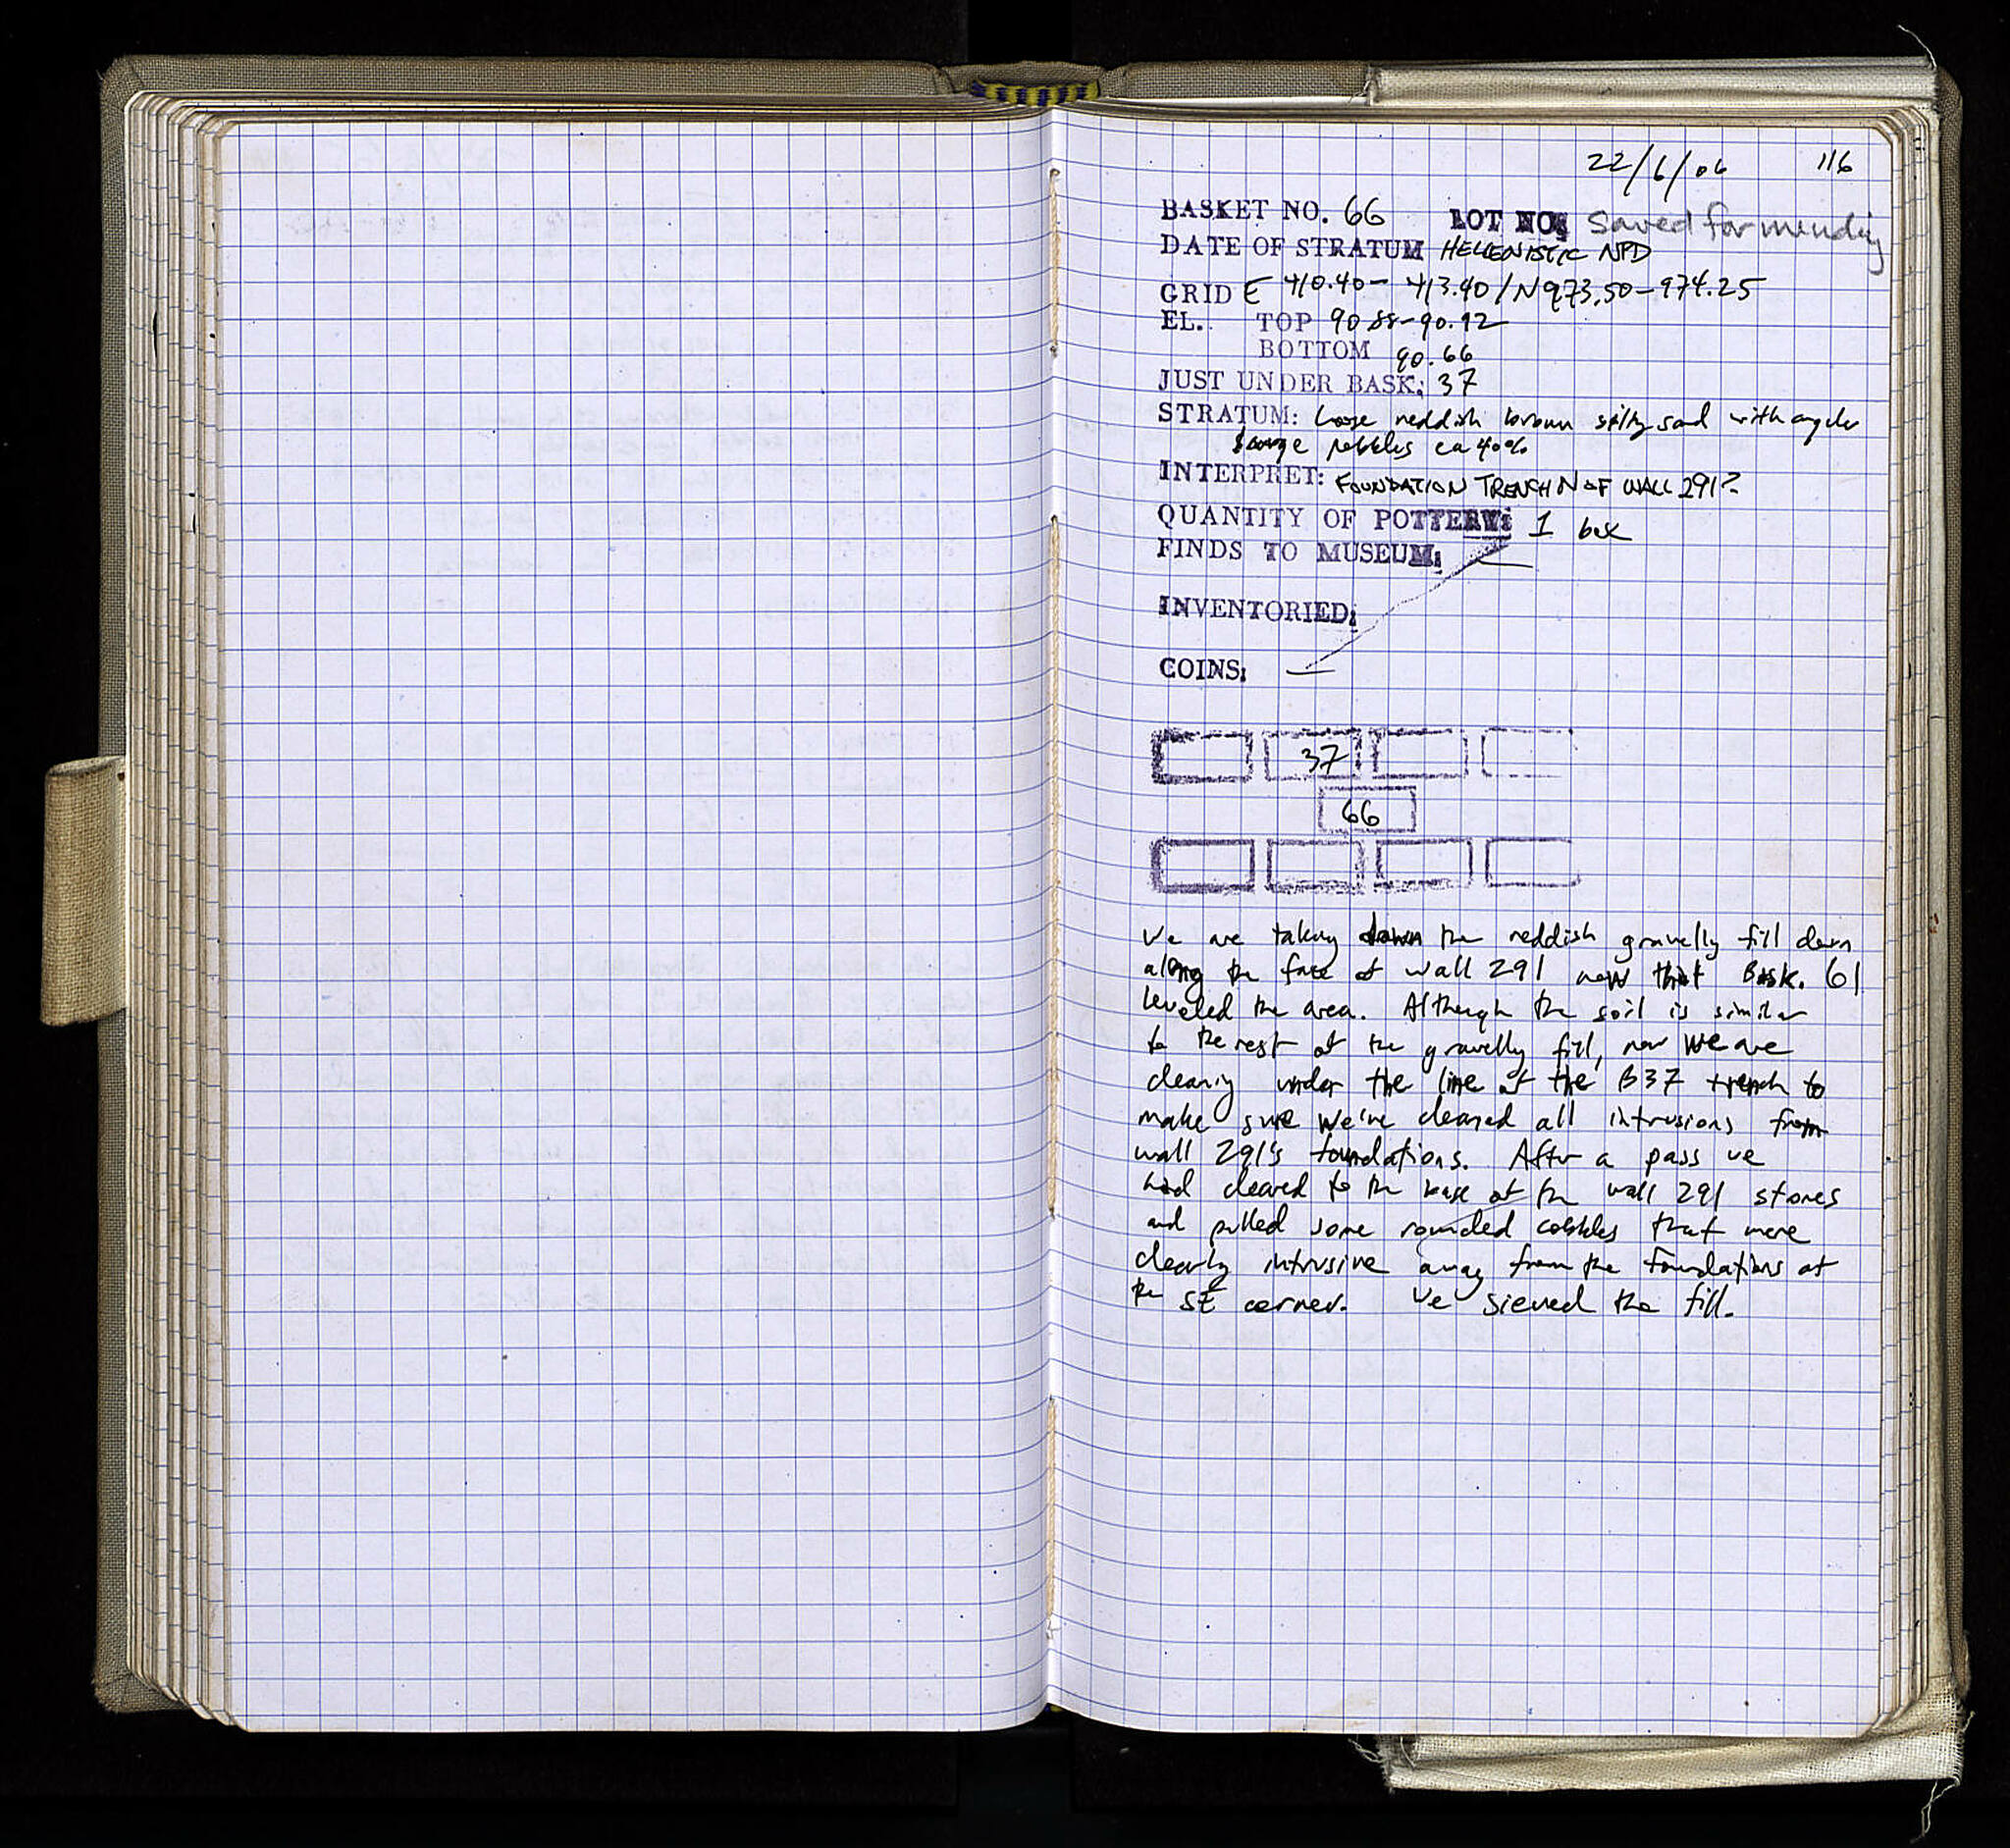 22/6/06 116
BASKET NO. 66 LOT NO: Saved for mending
DATE OF STRATUM HELLENISTIC NPD
GRID E 410.40- 413.40/N973.50-974.25
EL. TOP 90.88-90.92
BOTTOM 90.66
JUST UNDER BASK: 37
STRATUM: Loose reddish brown silty sand with angular
large pebbles ca 40%
INTERPRET: FOUNDATION TRENCH N OF WALL 291?
QUANTITY OF POTTERY: 1 box
FINDS TO MUSEUM: —
INVENTORIED:
COINS: —
37
66
We are taking down the reddish gravelly fill down
along the face of wall 291 now that Bask. 61
leveled the area. Although the soil is similar
to the rest of the gravelly fill, now we are
clearing under the line of the B37 trench to
make sure we've cleared all intrusions from
wall 291's foundations. After a pass we
had cleared to the base of the wall 291 stones
and pulled some rounded cobbles that were
clearly intrusive away from the foundations at
the SE corner. We sieved the fill.